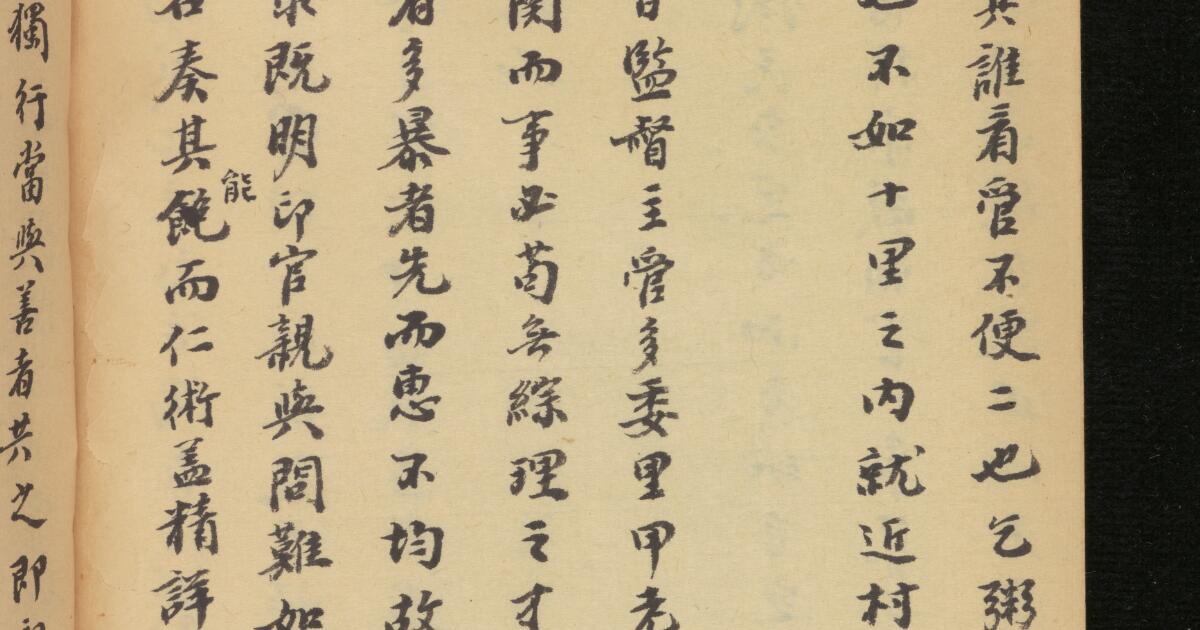 誰看管不便二也乞粥
不如十里之内就近村
監督主管多委里甲老
而事必苟無綜理之才
多暴者先而惠不均故
既明印官親與問難如
奏其能飽而仁術盖精詳
獨行當與善者共之即